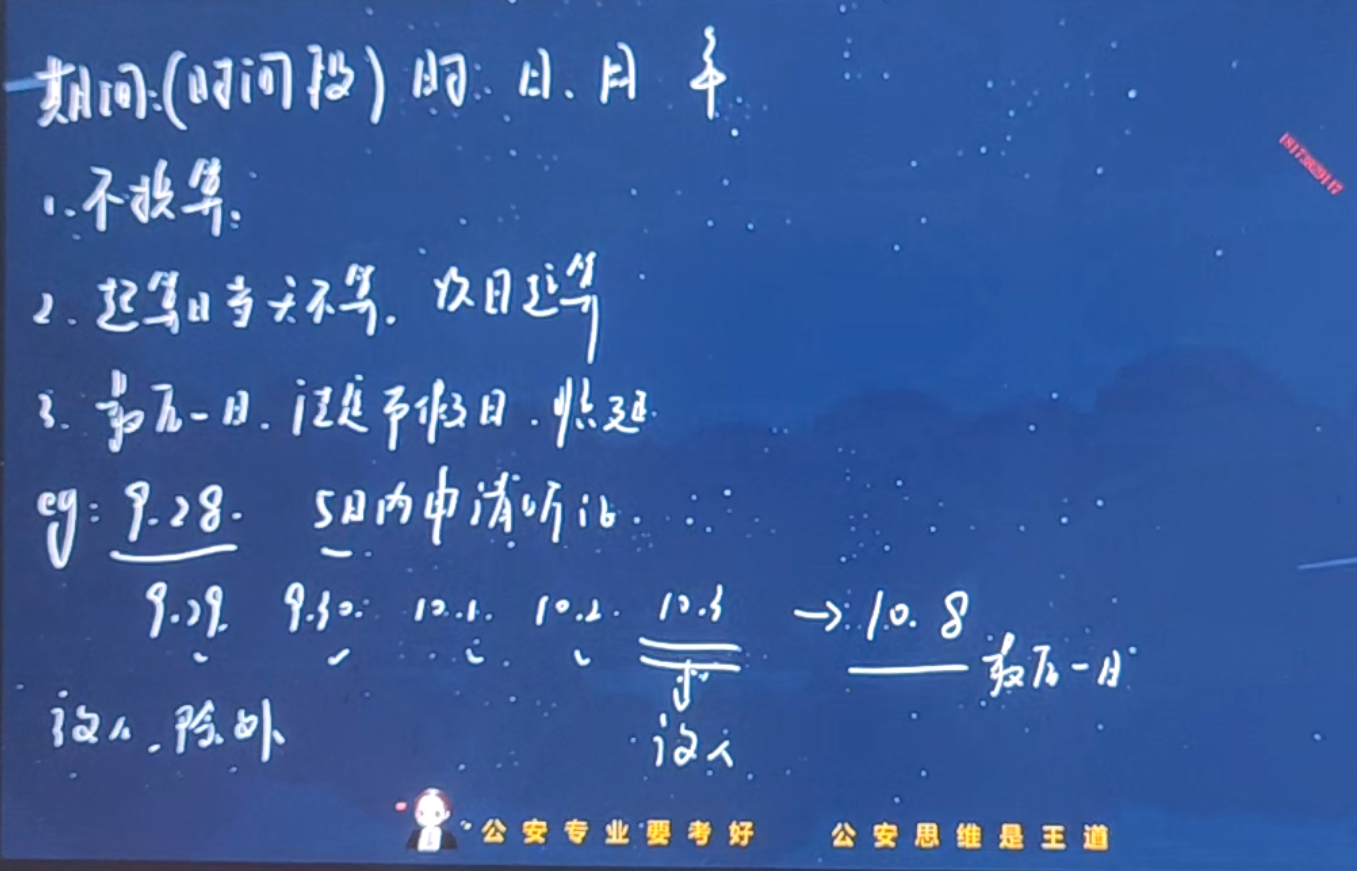 期间:(时间段) 时、日、月 年
1.不换算.
2.起算日当天不算. 次日起算
3.最后一日.法定节假日.顺延.
eg: 9.28. 5日内申请听证.
9.29. 9.30. 10.1. 10.2. 10.3 → 10.8 最后一日
没人.除外 没人
公安专业要考好 公安思维是王道